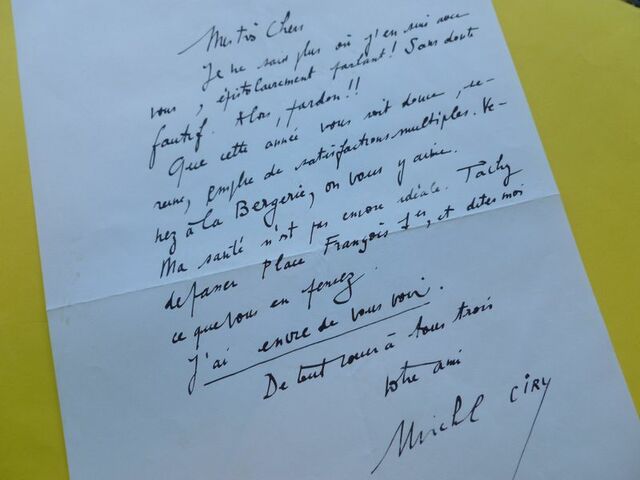 Mes très Chers
Je ne sais plus où j'en suis avec
vous, épistolairement parlant! Sans doute
fautif. Alors, pardon!!
Que cette année vous soit douce, se-
reine, emplie de satisfactions multiples. Ve-
nez à la Bergerie, on vous y aime.
Ma santé n'est pas encore idéale. Tachez
de passer Place François 1er, et dites moi
ce que vous en pensez.
J'ai envie de vous voir.
De tout coeur à tous trois
Votre ami
Michel CIRY